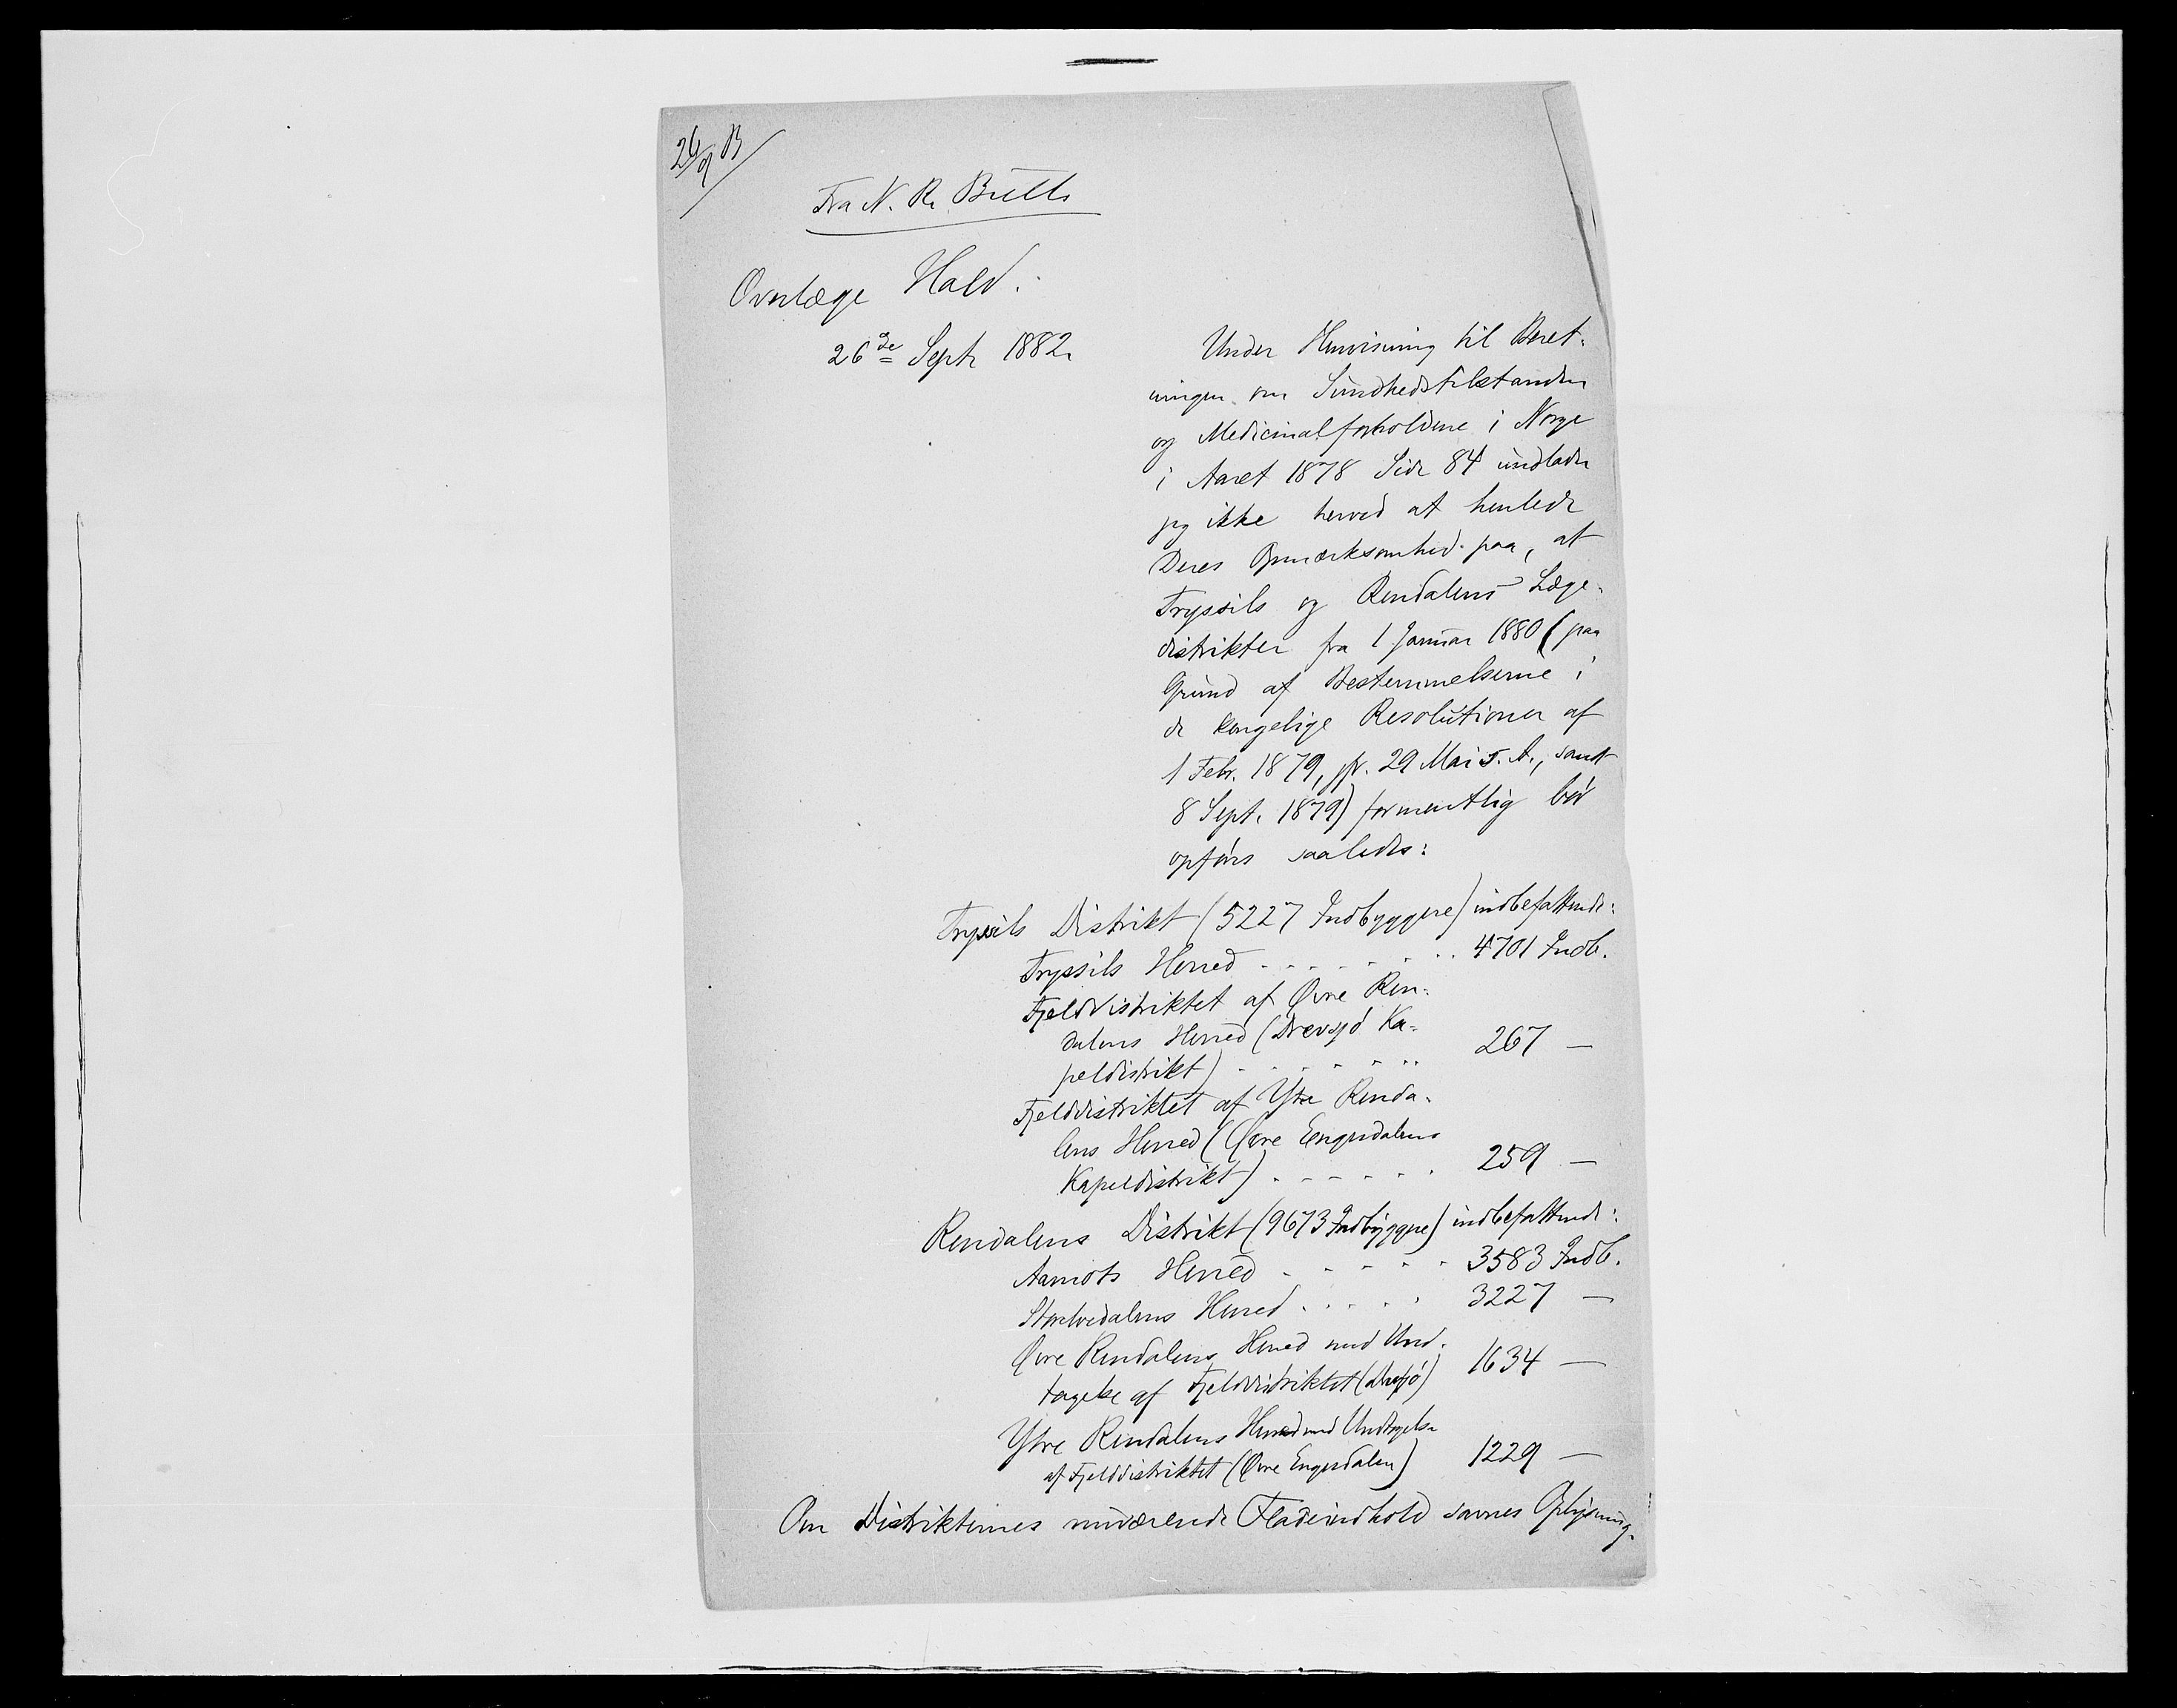 26/9 B
Fra N. R. Bull
Overlæge Hald.
26de Sept. 1882.
Under Henvisning til Beret-
ningen om Sundhedstilstanden
og Medicinalforholdene i Norge
i Aaret 1878 Side 84 undlader
jeg ikke herved at henlede
Deres Opmærksomhed paa, at
Tryssils og Rendalens Læge-
distrikter fra 1 Januar 1880 (paa
Grund af Bestemmelserne i
de kongelige Resolutioner af
1 Febr. 1879, jfr. 29 Mai s. A., samt
8 Sept. 1879) formentlig bør
opføres saaledes:
Tryssils Distrikt (5227 Indbyggere) indbefattende:
Tryssils Herred . . . . . . . 4701 Indb.
Fjelddistriktet af Øvre Ren-
dalens Herred (Drevsjø Ka-
peldistrikt) . . . . . . 267 —
Fjelddistriktet af Ytre Renda-
lens Herred (Øvre Engerdalens
Kapeldistrikt) . . . . . . 259 —
Rendalens Distrikt (9673 Indbyggere) indbefattende:
Aamots Herred . . . . . . 3583 Indb.
Storelvedalens Herred . . . . . 3227 —
Øvre Rendalens Herred med Und-
tagelse af Fjelddistriktet (Drefsjø) 1634 —
Ytre Rendalens Herred med Undtagelse
af Fjelddistriktet (Øvre Engerdalen) 1229 —
Om Distrikternes nuværende Fladeindhold savnes Oplysning.